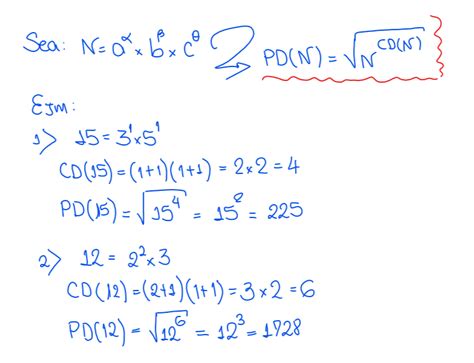 Sea: N = a^α × b^β × c^θ PD(N) = √N^CD(N)
EJM:
1) 15 = 3^1 × 5^1
CD(15) = (1+1)(1+1) = 2×2 = 4
PD(15) = √15^4 = 15^2 = 225
2) 12 = 2^2 × 3
CD(12) = (2+1)(1+1) = 3 × 2 = 6
PD(12) = √12^6 = 12^3 = 1728